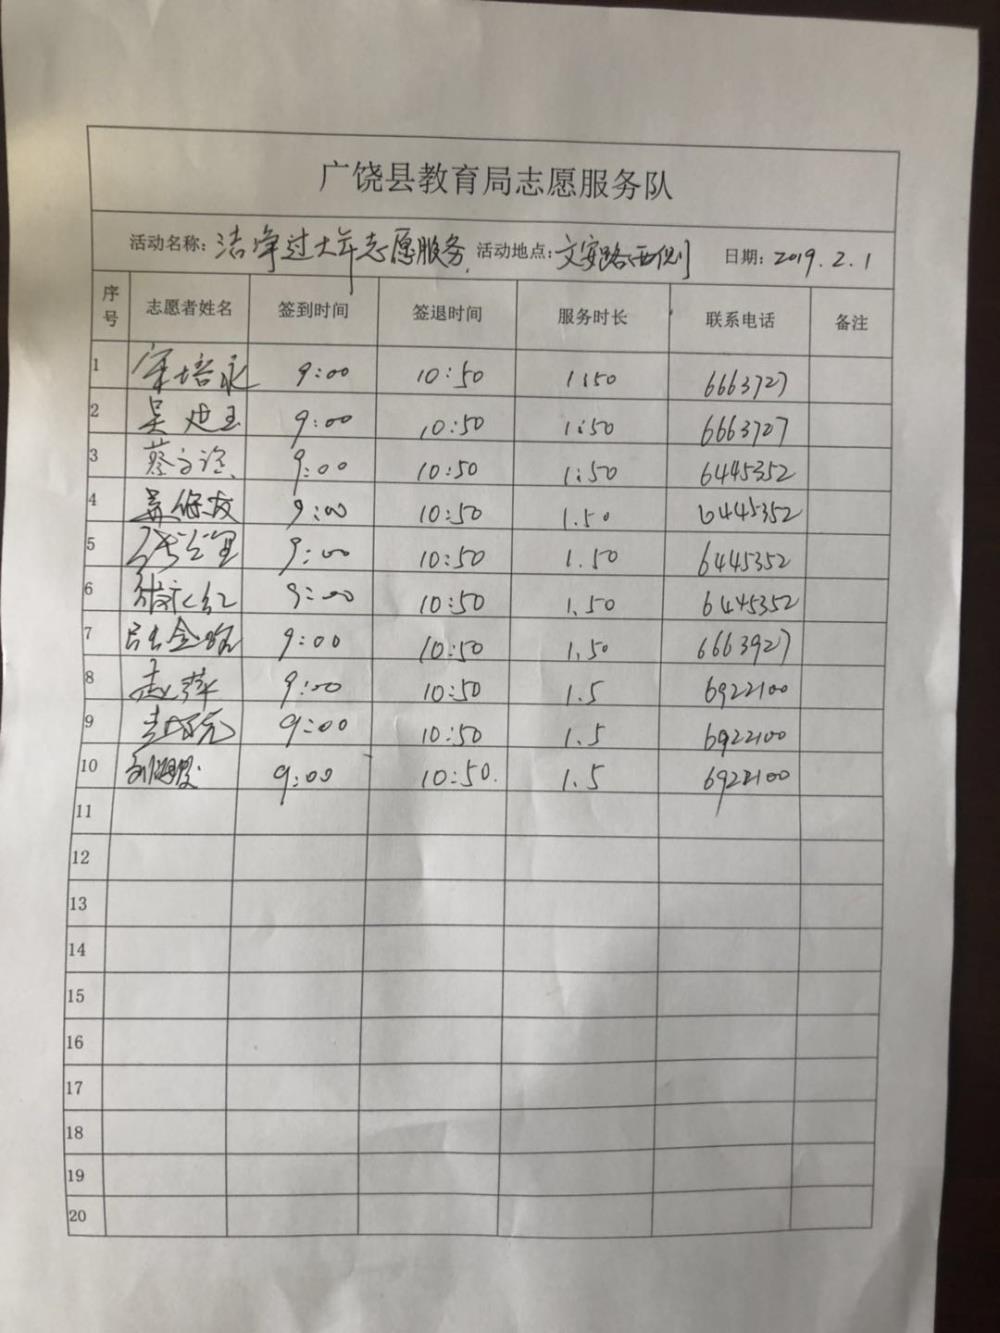 广饶县教育局志愿服务队
活动名称：洁净过大年志愿服务 活动地点：文安路西侧 日期：2019.2.1
序号 志愿者姓名 签到时间 签退时间 服务时长 联系电话 备注
1 宋培永 9:00 10:50 1:50 6663727
2 吴 玉 9:00 10:50 1:50 6663727
3 蔡 9:00 10:50 1:50 6445352
4 9:00 10:50 1.50 6445352
5 9:00 10:50 1.50 6445352
6 张永红 9:00 10:50 1.50 6445352
7 金 9:00 10:50 1.50 6663927
8 赵萍 9:00 10:50 1.5 6922100
9 9:00 10:50 1.5 6922100
10 刘海霞 9:00 10:50. 1.5 6922100
11
12
13
14
15
16
17
18
19
20